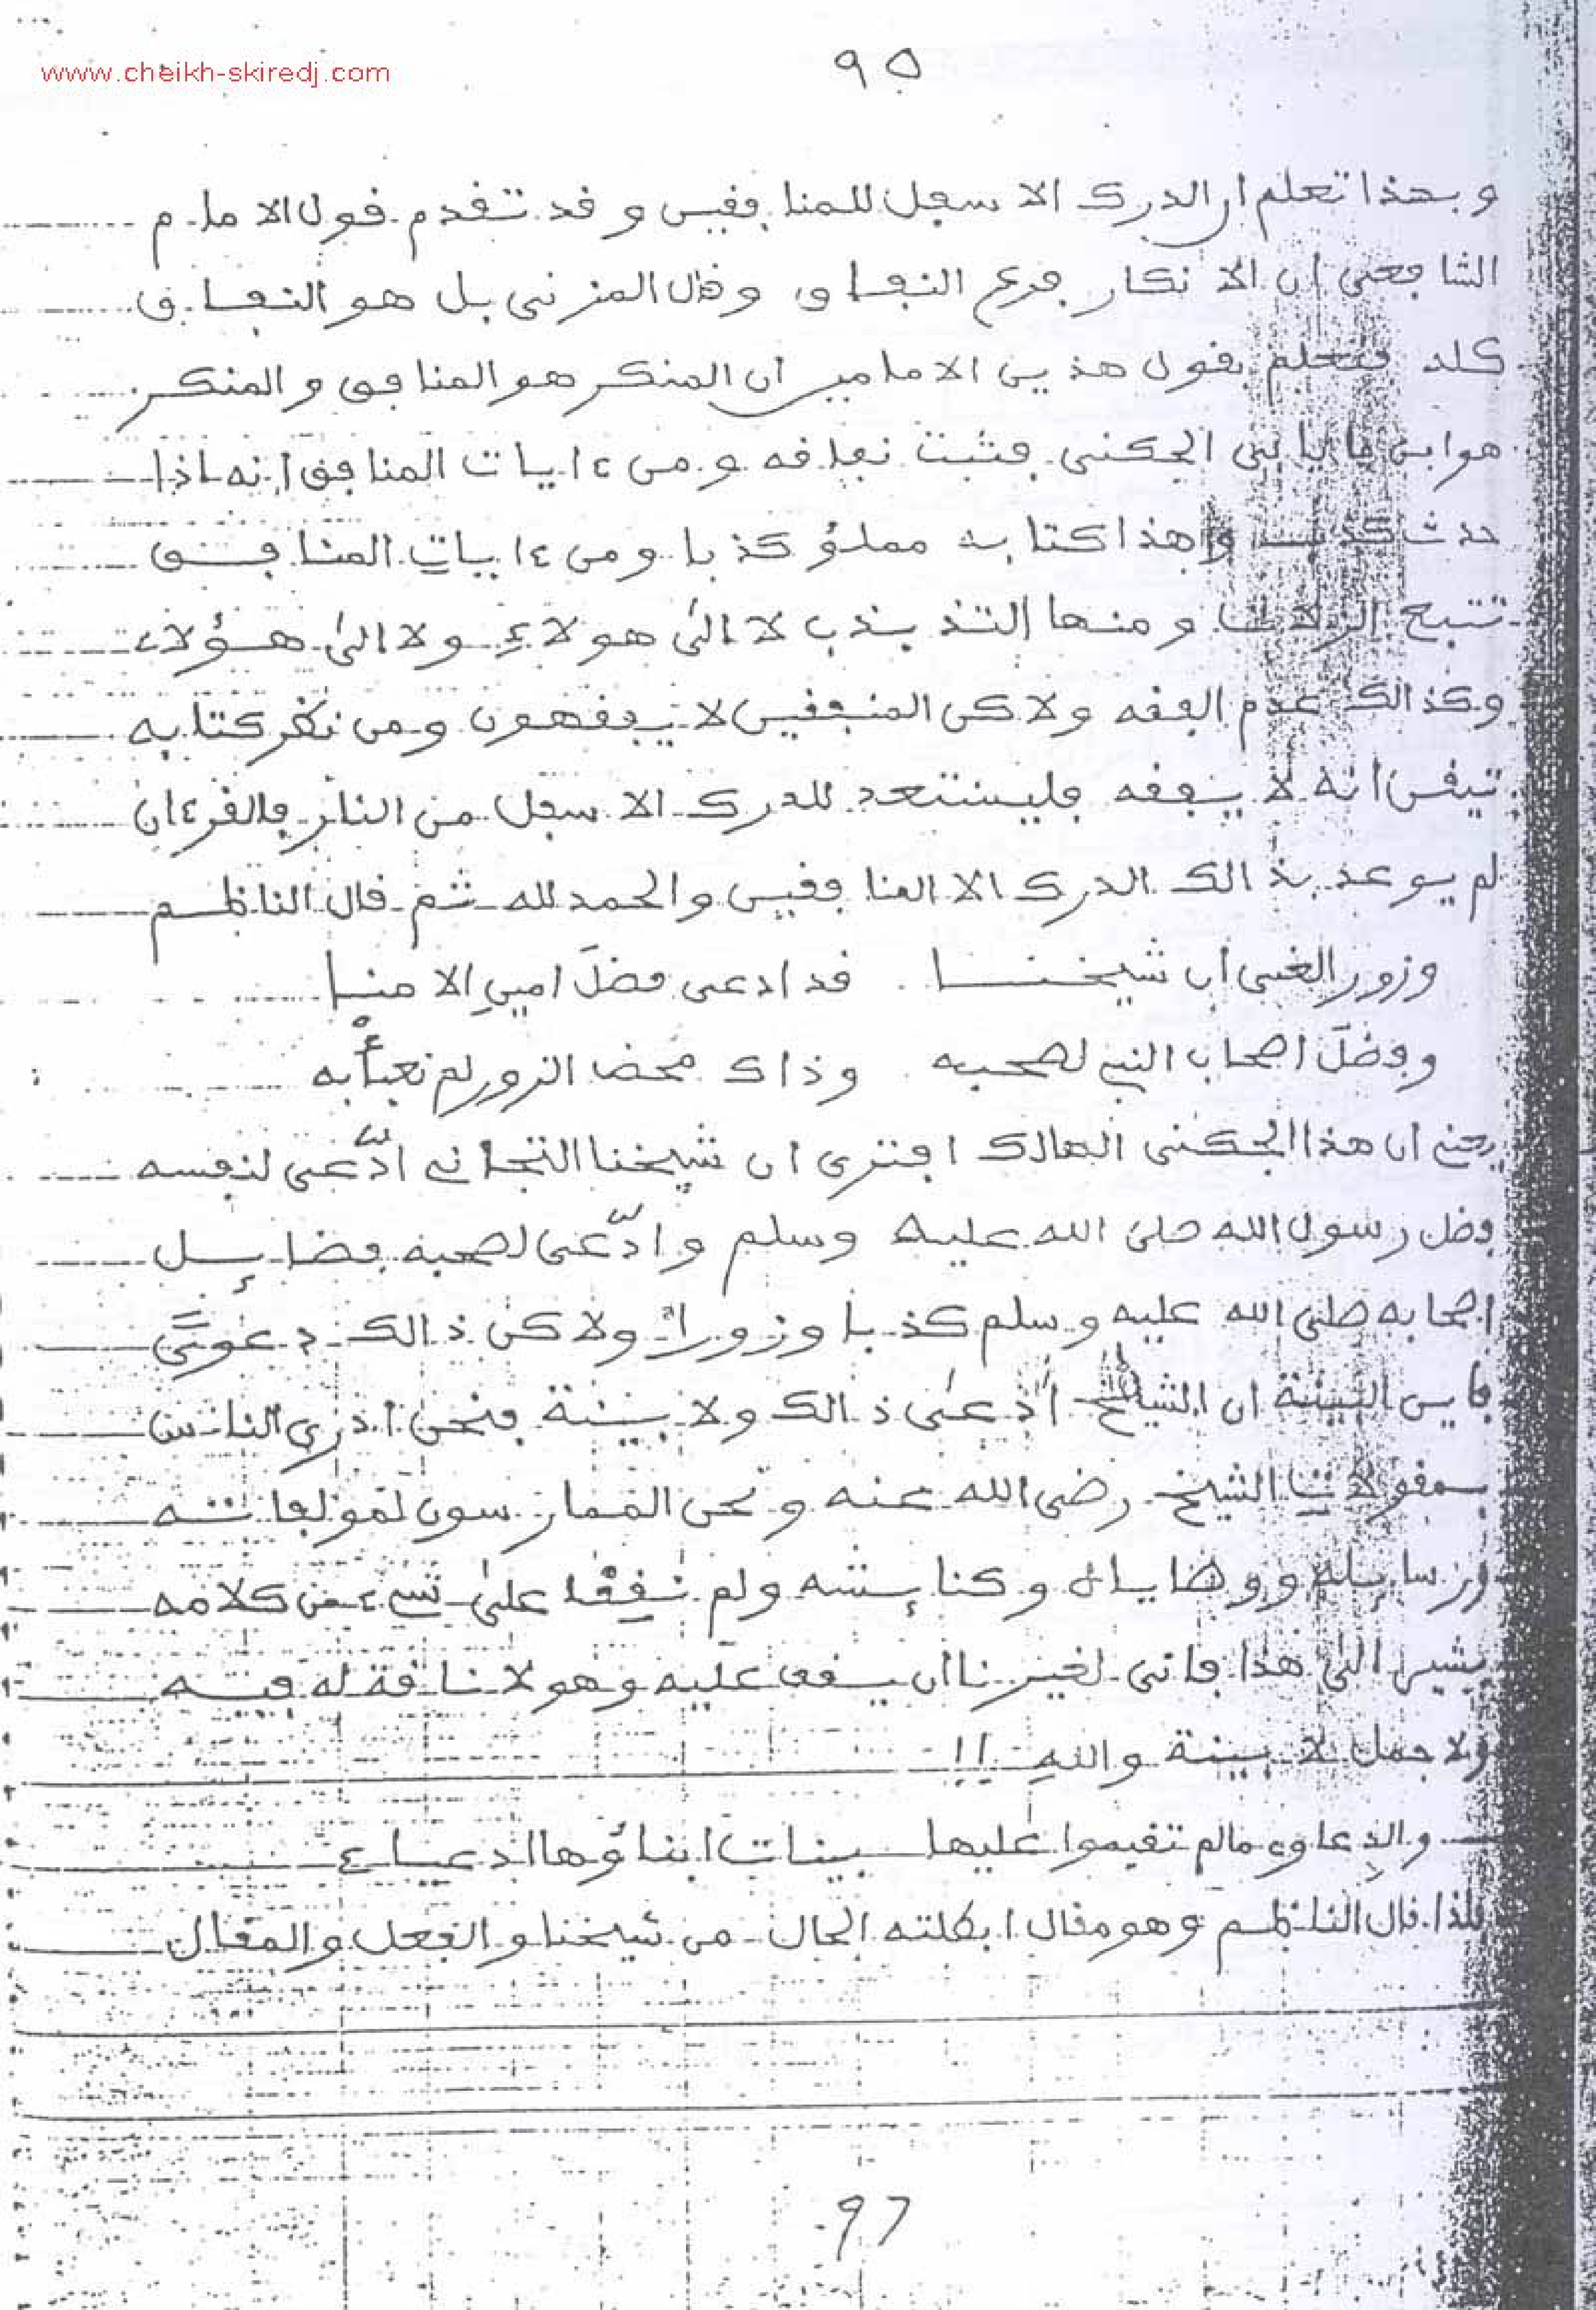 www.cheikh-skiredj.com
٩٥
وبهذا تعلم ان الدرك الاسفل للمنافقين وقد تقدم قول الامام
الشافعي ان الانكار فرع النفاق وقال المزني بل هو النفاق
كله فتعلم بقول هذين الامامين ان المنكر هو المنافق والمنكر
هو ابن مايابى الجكني فثبت نفاقه ومن ءايات المنافق انه اذا
حدث كذب وهذا كتابه مملوٌ كذبا ومن ءايات المنافق
تتبع الزلات ومنها التذبذب لا الى هولاء ولا الى هؤلاء
وكذالك عدم الفقه ولاكن المنفقين لا يفقهون ومن نظر كتابه
تيقن انه لا يفقه فليستعد للدرك الاسفل من النار فالقرءان
لم يوعد بذالك الدرك الا المنافقين والحمد لله ثم قال الناظم
وزور الغبى ان شيخنا قد ادعى فضلَ امينِ الامنا
وفضلَ اصحاب النبي لصحبه وذاك محض الزور لم نعبأْ به
يعني ان هذا الجكني الهالك افترى ان شيخنا التجاني ادّعى لنفسه
فضل رسول الله صلى الله عليه وسلم وادّعى لصحبه فضايل
اصحابه صلى الله عليه وسلم كذبا وزوراً ولاكن ذالك دعوىً
فاين البينة ان الشيخ ادعى ذالك ولا بينة فنحن ادرى الناس
بمقولات الشيخ رضى الله عنه ونحن الممارسون لمؤلفاته
ورسايله ووصاياه وكنايشه ولم نقِفْ على شيء من كلامه
يشير الى هذا فانى لغيرنا ان يقف عليه وهو لا ناقة له فيه
ولا جمل لا بينة واللهِ !!
والدعاوى مالم تقيموا عليها بينات ابناؤها ادعياء
لذا قال الناظم وهو مقال ابطلته الحال من شيخنا والفعل والمقال
٩٦